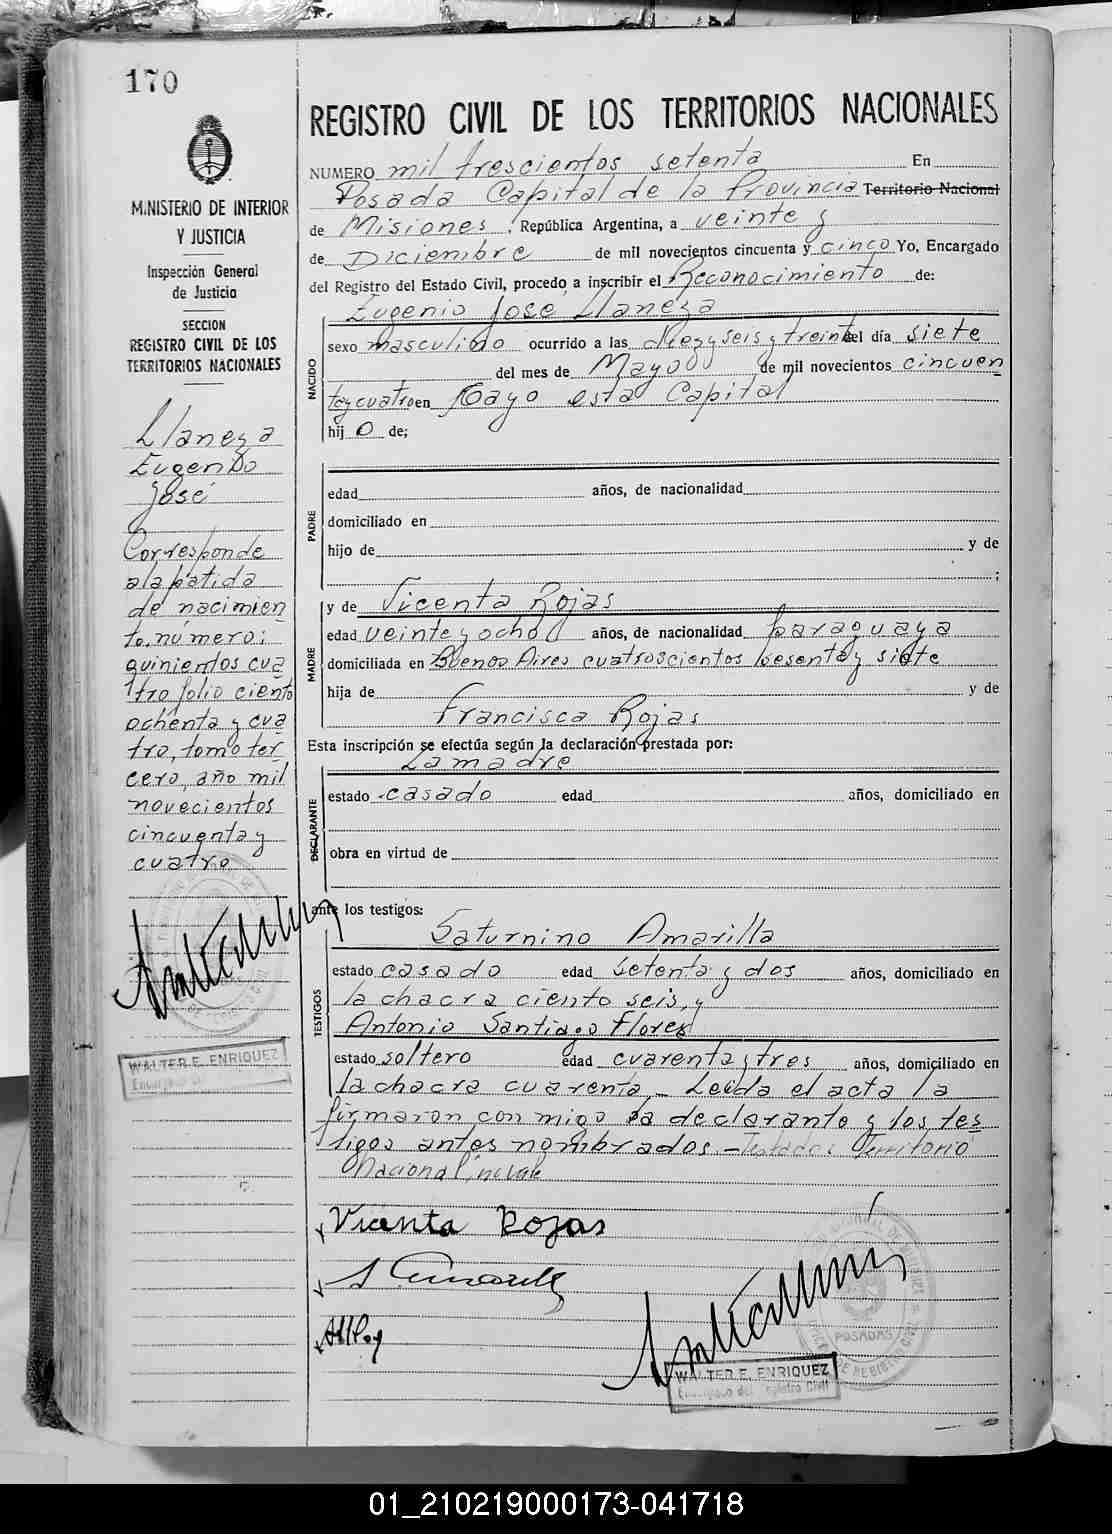 170
MINISTERIO DE INTERIOR
Y JUSTICIA
Inspección General
de Justicia
SECCION
REGISTRO CIVIL DE LOS
TERRITORIOS NACIONALES
Llaneza
Eugenio
José
Corresponde
a la patida
de nacimien
to, número;
quinientos cua
tro folio ciento
ochenta y cua
tro, tomo ter
cero, año mil
novecientos
cincuenta y
cuatro
WALTER E. ENRIQUEZ
REGISTRO CIVIL DE LOS TERRITORIOS NACIONALES
NUMERO mil trescientos setenta En
Posada Capital de la Provincia Territorio Nacional
de Misiones, República Argentina, a veinte y
de Diciembre de mil novecientos cincuenta y cinco Yo, Encargado
del Registro del Estado Civil, procedo a inscribir el Reconocimiento de:
Eugenio José Llaneza
NACIDO
sexo masculino ocurrido a las diez y seis y treinta del día siete
del mes de Mayo de mil novecientos cincuen
ta y cuatro en esta Capital
hij o de;
PADRE
edad años, de nacionalidad
domiciliado en
hijo de y de
;
MADRE
y de Vicenta Rojas
edad veinte y ocho años, de nacionalidad paraguaya
domiciliada en Buenos Aires cuatroscientos sesenta y siete
hija de y de
Francisca Rojas
Esta inscripción se efectúa según la declaración prestada por:
La madre
DECLARANTE
estado casado edad años, domiciliado en
obra en virtud de
ante los testigos:
TESTIGOS
Saturnino Amarilla
estado casado edad setenta y dos años, domiciliado en
la chacra ciento seis, y
Antonio Santiago Florez
estado soltero edad cuarenta y tres años, domiciliado en
la chacra cuarenta Leida el acta la
firmaron con migo la declarante y los tes
tigos antes nombrados.- Testados: Territorio
Nacional, no vale
Vicenta Rojas
POSADAS
WALTER E. ENRIQUEZ
Encargado del Registro Civil
01_210219000173-041718